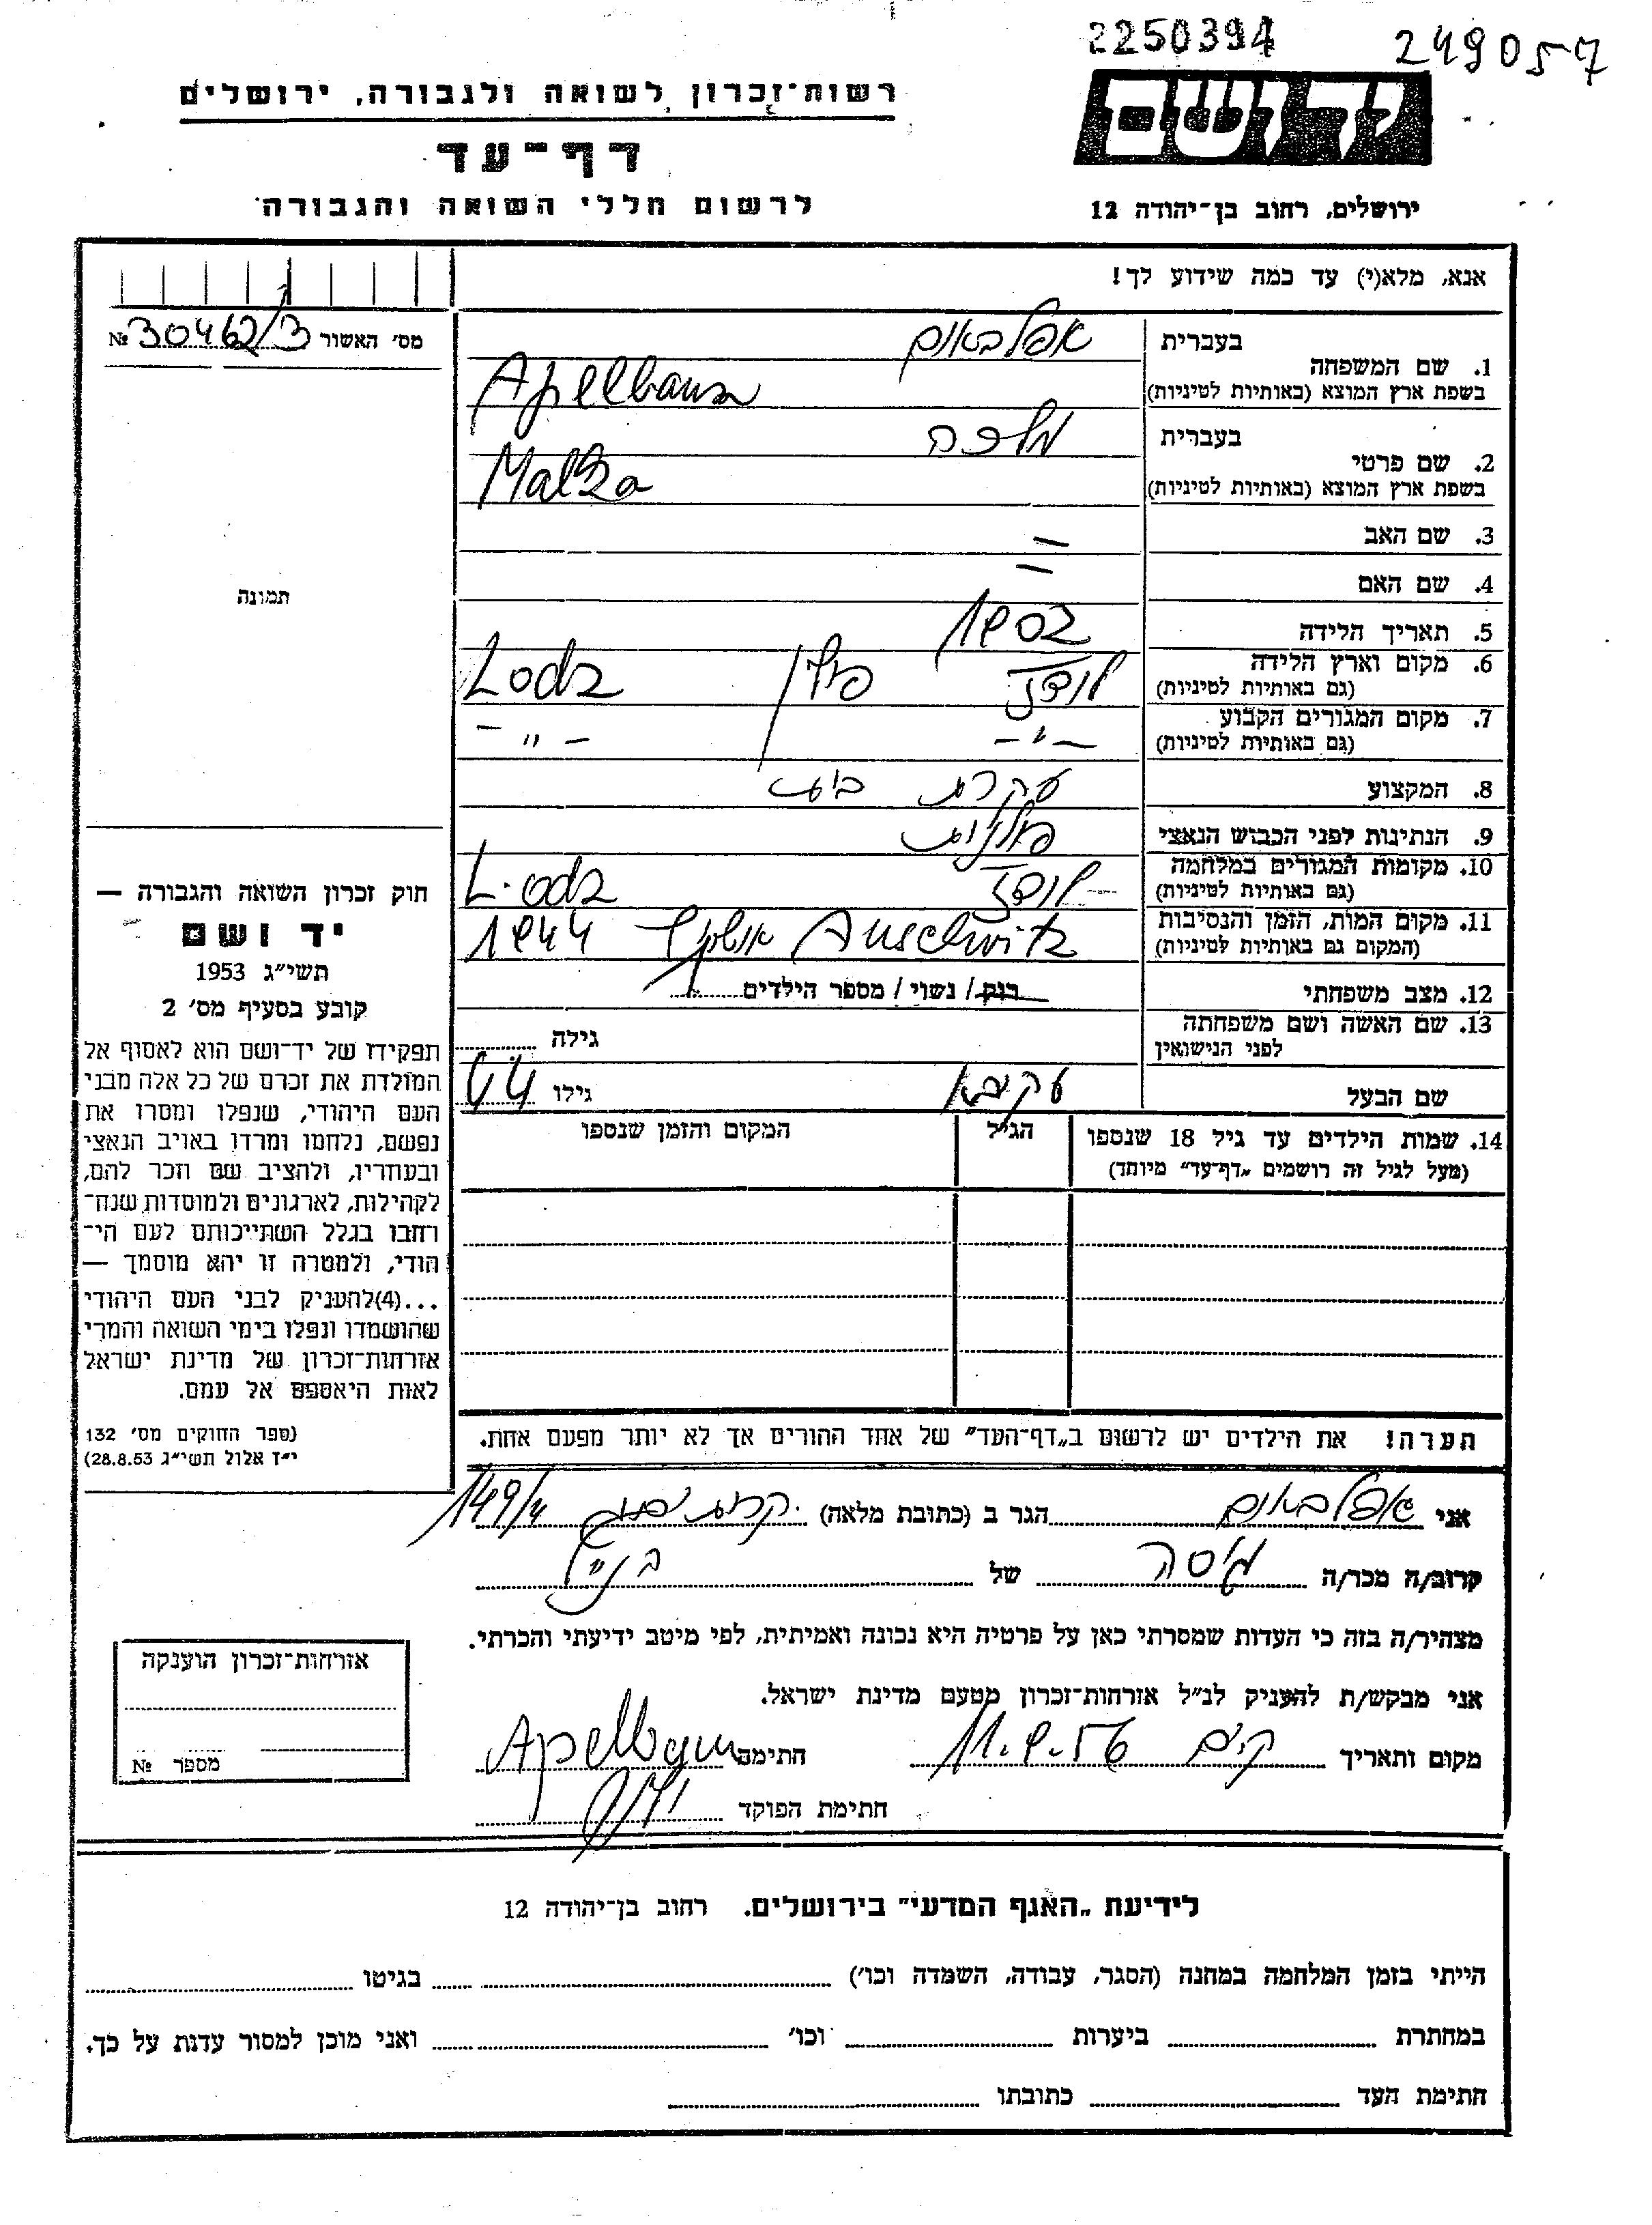 2250394 249057
רשות־זכרון לשואה ולגבורה, ירושלים
יד ושם
דף־עד
לרשום חללי השואה והגבורה
ירושלים, רחוב בן־יהודה 12
אנא, מלא(י) עד כמה שידוע לך!
מס׳ האשור 30462/3 №
בעברית אפלבאום
1. שם המשפחה
בשפת ארץ המוצא (באותיות לטיניות) Apelbaum
בעברית מלכה
2. שם פרטי
בשפת ארץ המוצא (באותיות לטיניות) Malka
3. שם האב —
4. שם האם —
תמונה
5. תאריך הלידה 1902
6. מקום וארץ הלידה לודז פולין Lodz
(גם באותיות לטיניות)
7. מקום המגורים הקבוע — " — — " —
(גם באותיות לטיניות)
8. המקצוע עקרת בית
9. הנתינות לפני הכבוש הנאצי פולנית
10. מקומות המגורים במלחמה לודז Lodz
(גם באותיות לטיניות)
11. מקום המות, הזמן והנסיבות Auschwitz אושויץ 1944
(המקום גם באותיות לטיניות)
12. מצב משפחתי רוק / נשוי / מספר הילדים
13. שם האשה ושם משפחתה גילה
לפני הנישואין
שם הבעל עקיבא גילו 44
14. שמות הילדים עד גיל 18 שנספו הגיל המקום והזמן שנספו
(מעל לגיל זה רושמים „דף־עד״ מיוחד)
חוק זכרון השואה והגבורה —
יד ושם
תשי״ג 1953
קובע בסעיף מס׳ 2
תפקידו של יד־ושם הוא לאסוף אל
המולדת את זכרם של כל אלה מבני
העם היהודי, שנפלו ומסרו את
נפשם, נלחמו ומרדו באויב הנאצי
ובעוזריו, ולהציב שם וזכר להם,
לקהילות, לארגונים ולמוסדות שנח־
רחבו בגלל השתייכותם לעם הי־
הודי, ולמטרה זו יהא מוסמך —
...(4)להעניק לבני העם היהודי
שהושמדו ונפלו בימי השואה והמרי
אזרחות־זכרון של מדינת ישראל
לאות היאספם אל עמם.
(ספר החוקים מס׳ 132
י״ז אלול תשי״ג 28.8.53)
הערה! את הילדים יש לרשום ב„דף־העד״ של אחד ההורים אך לא יותר מפעם אחת.
אני אפלבאום הגר ב (כתובת מלאה) קרית 149/4
קרוב/ה מכר/ה גיסה של הנ״ל
מצהיר/ה בזה כי העדות שמסרתי כאן על פרטיה היא נכונה ואמיתית, לפי מיטב ידיעתי והכרתי.
אני מבקש/ת להעניק לנ״ל אזרחות־זכרון מטעם מדינת ישראל.
מקום ותאריך 11.9.56 חתימה Apelbaum
חתימת הפוקד
אזרחות־זכרון הוענקה
מספר №
לידיעת „האגף המדעי״ בירושלים. רחוב בן־יהודה 12
הייתי בזמן המלחמה במחנה (הסגר, עבודה, השמדה וכו׳) בגיטו
במחתרת ביערות וכו׳ ואני מוכן למסור עדות על כך.
חתימת העד כתובתו